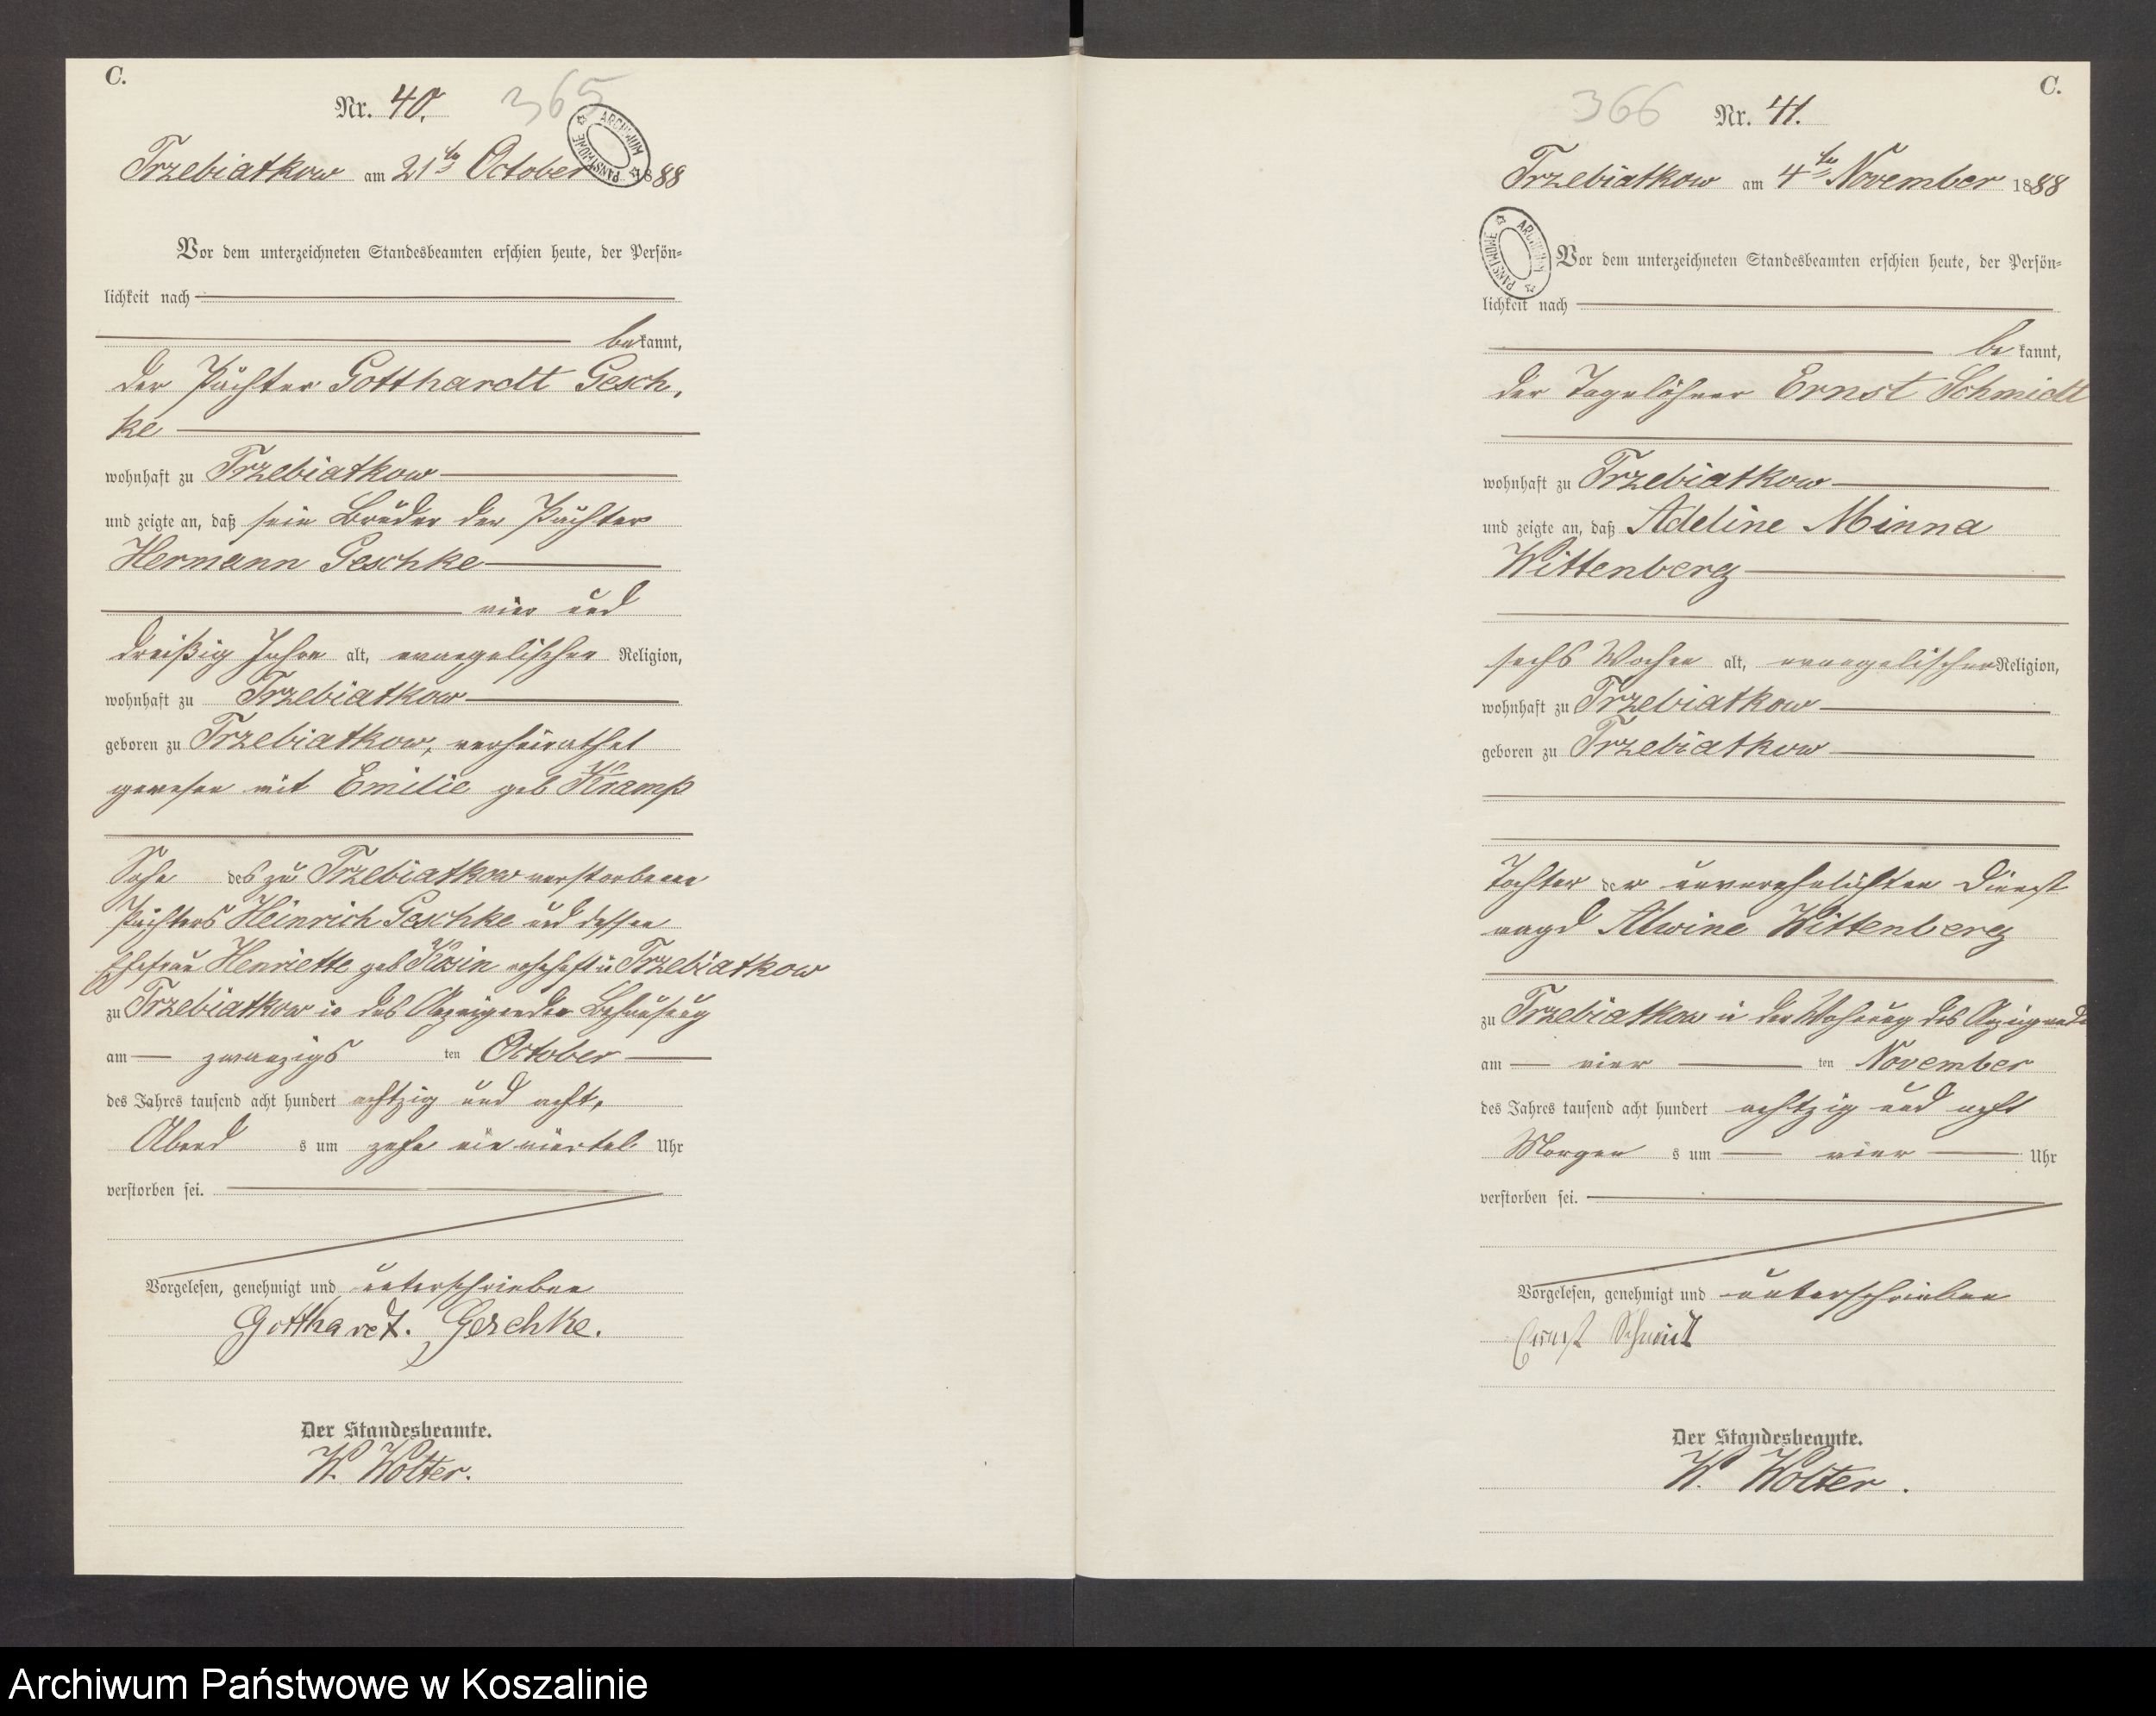 C.
Nr. 40.
365
ARCHIWUM PAŃSTWOWE
Trzebiatkow am 21ten October 1888
Vor dem unterzeichneten Standesbeamten erschien heute, der Persön-
lichkeit nach
bekannt,
der Pächter Gotthardt Gesch,
ke
wohnhaft zu Trzebiatkow
und zeigte an, daß sein Bruder der Pächter
Hermann Geschke
vier und
dreißig Jahre alt, evangelischer Religion,
wohnhaft zu Trzebiatkow
geboren zu Trzebiatkow, verheirathet
gewesen mit Emilie geb Kramp
Sohn des zu Trzebiatkow verstorbenen
Pächters Heinrich Geschke und dessen
Ehefrau Henriette geb Kosin wohnhaft in Trzebiatkow
zu Trzebiatkow in des Anzeigenden Behausung
am zwanzigs ten October
des Jahres tausend acht hundert achtzig und acht,
Abend s um zehn ein viertel Uhr
verstorben sei.
Vorgelesen, genehmigt und unterschrieben
Gotthardt. Geschke.
Der Standesbeamte.
W. Wolter.
C.
366
Nr. 41.
Trzebiatkow am 4ten November 1888
ARCHIWUM PAŃSTWOWE
Vor dem unterzeichneten Standesbeamten erschien heute, der Persön-
lichkeit nach
be kannt,
der Tagelöhner Ernst Schmidt
wohnhaft zu Trzebiatkow
und zeigte an, daß Adeline Minna
Wittenberg
sechs Wochen alt, evangelischer Religion,
wohnhaft zu Trzebiatkow
geboren zu Trzebiatkow
Tochter der unverehelichten Dienst
magd Alwine Wittenberg
zu Trzebiatkow in der Wohnung des Anzeigenden
am vier ten November
des Jahres tausend acht hundert achtzig und acht
Morgen s um vier Uhr
verstorben sei.
Vorgelesen, genehmigt und unterschrieben
Ernst Schmidt
Der Standesbeamte.
W. Wolter.
Archiwum Państwowe w Koszalinie